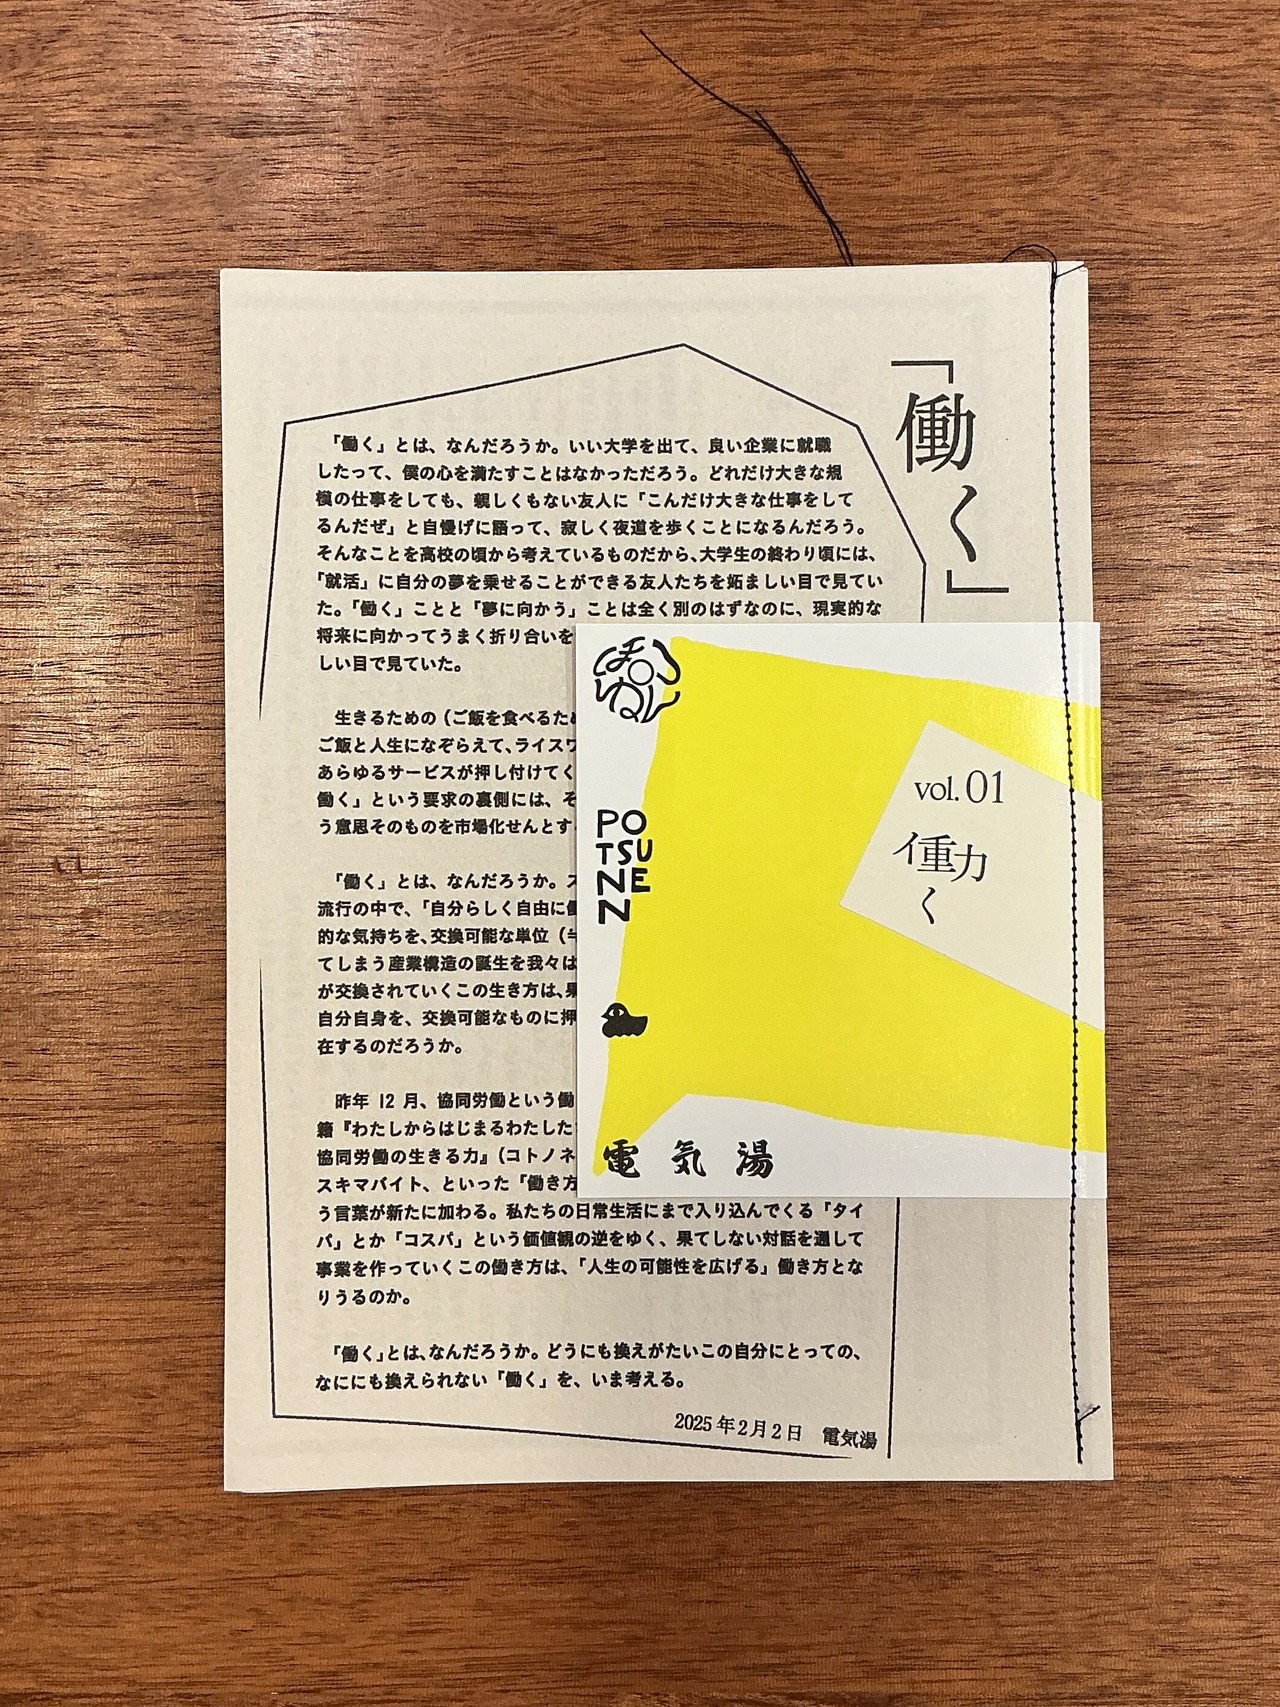 「働く」
「働く」とは、なんだろうか。いい大学を出て、良い企業に就職
したって、僕の心を満たすことはなかっただろう。どれだけ大きな規
模の仕事をしても、親しくもない友人に「こんだけ大きな仕事をして
るんだぜ」と自慢げに語って、寂しく夜道を歩くことになるんだろう。
そんなことを高校の頃から考えているものだから、大学生の終わり頃には、
「就活」に自分の夢を乗せることができる友人たちを妬ましい目で見てい
た。「働く」ことと「夢に向かう」ことは全く別のはずなのに、現実的な
将来に向かってうまく折り合いを
しい目で見ていた。
生きるための（ご飯を食べるため
ご飯と人生になぞらえて、ライスワ
あらゆるサービスが押し付けてく
働く」という要求の裏側には、そ
う意思そのものを市場化せんとす
「働く」とは、なんだろうか。ス
流行の中で、「自分らしく自由に働
的な気持ちを、交換可能な単位（
てしまう産業構造の誕生を我々は
が交換されていくこの生き方は、果
自分自身を、交換可能なものに押
在するのだろうか。
昨年 12 月、協同労働という働
籍『わたしからはじまるわたした
協同労働の生きる力』（コトノネ
スキマバイト、といった「働き方
う言葉が新たに加わる。私たちの日常生活にまで入り込んでくる「タイ
パ」とか「コスパ」という価値観の逆をゆく、果てしない対話を通して
事業を作っていくこの働き方は、「人生の可能性を広げる」働き方とな
りうるのか。
「働く」とは、なんだろうか。どうにも換えがたいこの自分にとっての、
なににも換えられない「働く」を、いま考える。
2025年2月2日　電気湯
PO
TSU
NE
N
vol. 01
働
く
電気湯